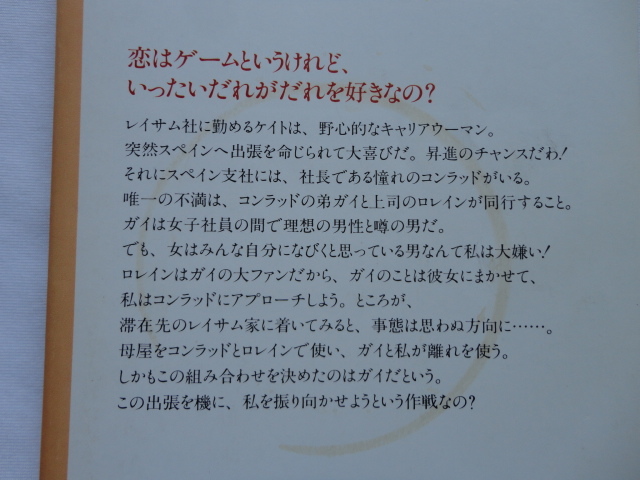 恋はゲームというけれど、
いったいだれがだれを好きなの？
レイサム社に勤めるケイトは、野心的なキャリアウーマン。
突然スペインへ出張を命じられて大喜びだ。昇進のチャンスだわ！
それにスペイン支社には、社長である憧れのコンラッドがいる。
唯一の不満は、コンラッドの弟ガイと上司のロレインが同行すること。
ガイは女子社員の間で理想の男性と噂の男だ。
でも、女はみんな自分になびくと思っている男なんて私は大嫌い！
ロレインはガイの大ファンだから、ガイのことは彼女にまかせて、
私はコンラッドにアプローチしよう。ところが、
滞在先のレイサム家に着いてみると、事態は思わぬ方向に……。
母屋をコンラッドとロレインで使い、ガイと私が離れを使う。
しかもこの組み合わせを決めたのはガイだという。
この出張を機に、私を振り向かせようという作戦なの？